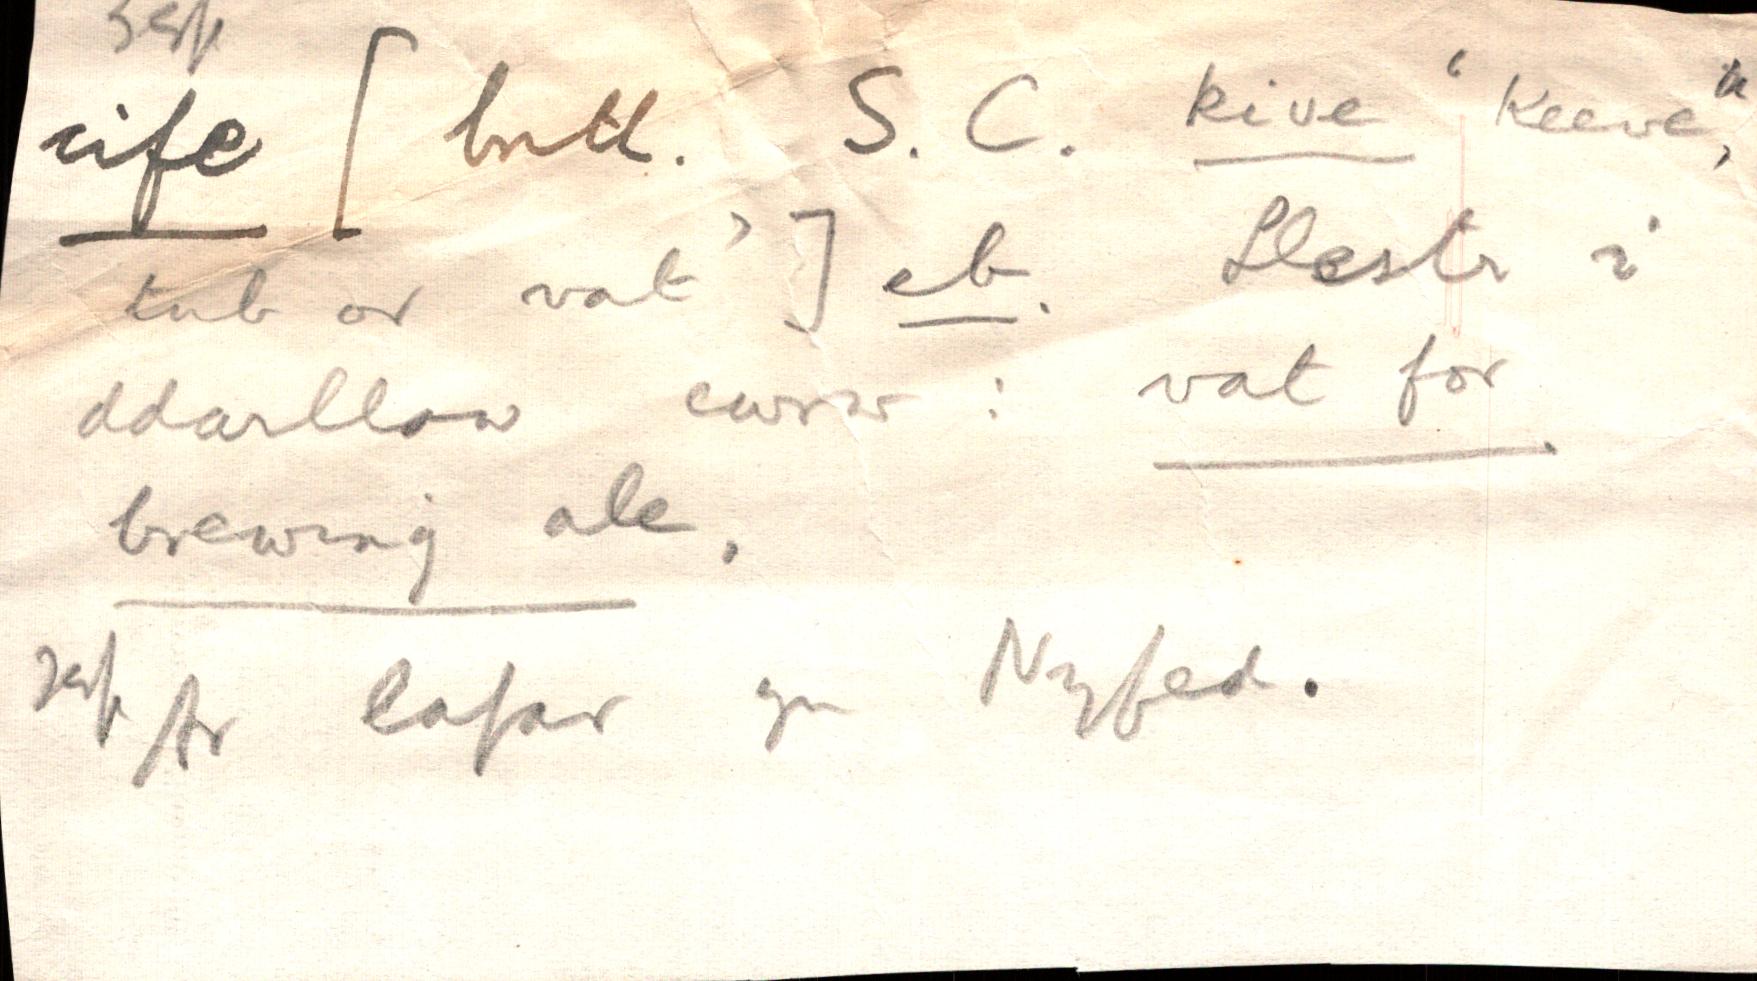 cife [ bnth. S. C. kive ‘Keeve, a
tub or vat’] eb. Llestr i
ddarllaw cwrw : vat for
brewing ale.
Ar lafar yn Nyfed.